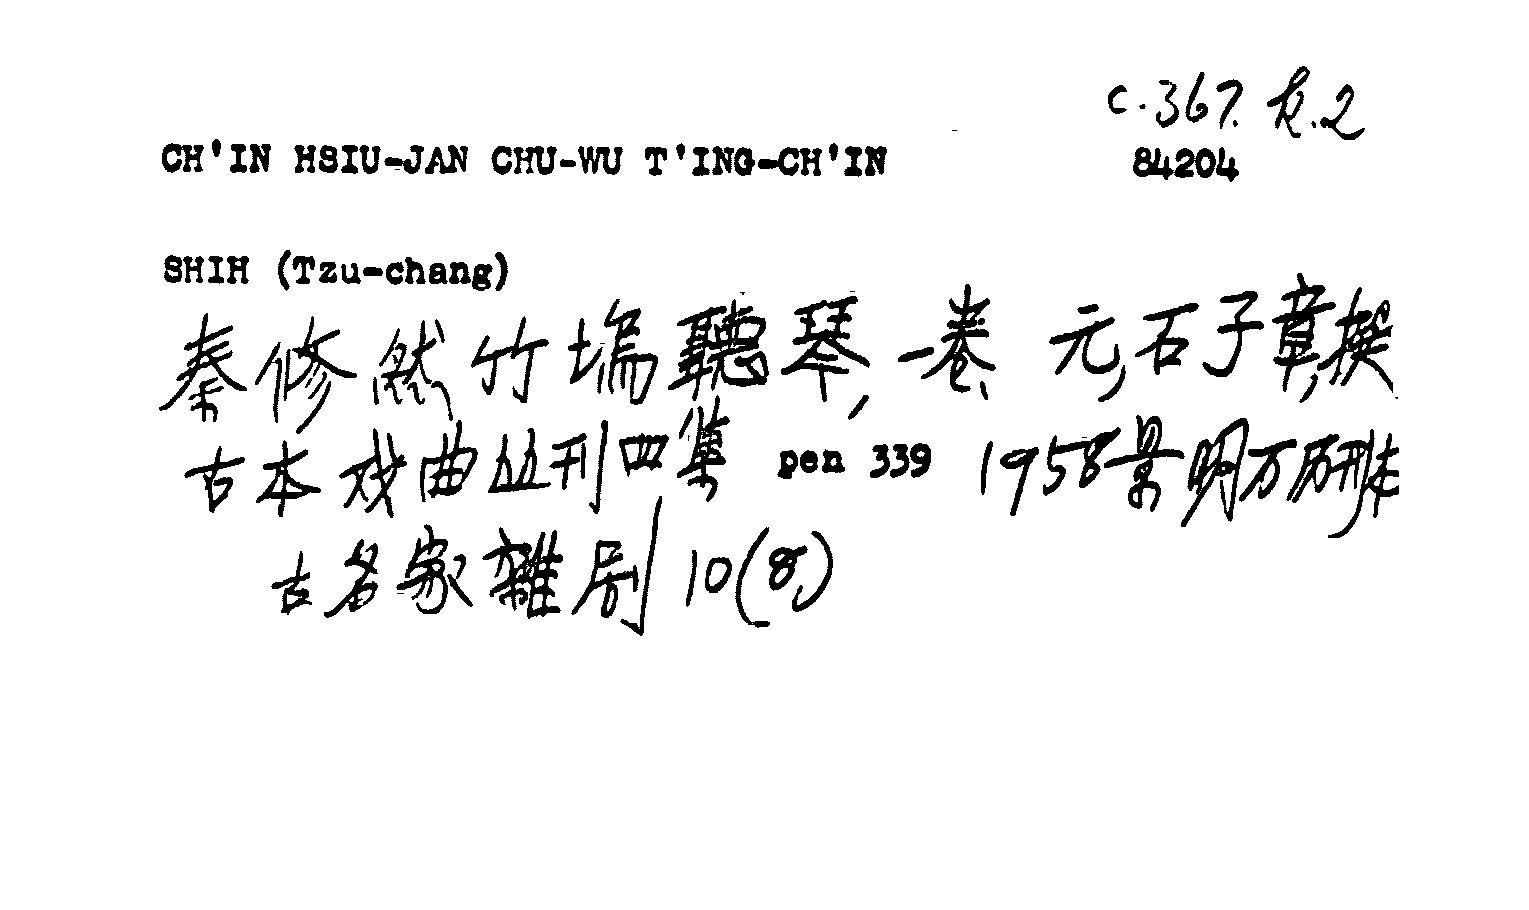 c.367.k.2
CH'IN HSIU-JAN CHU-WU T'ING-CH'IN 84204
SHIH (Tzu-chang)
秦修然竹塢聽琴,一卷 元,石子章,撰
古本戏曲丛刊四集 pen 339 1958景明万历刊本
古名家雜剧 10(8)